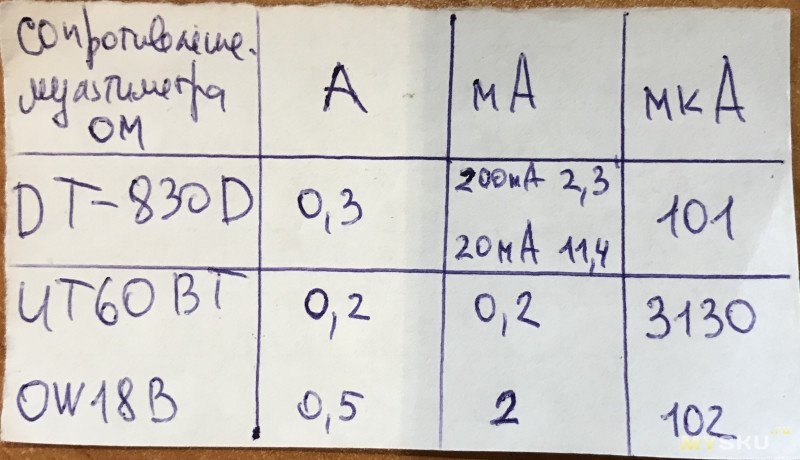 Сопротивление
мультиметра
ОМ
А
мА
мкА
DT-830D
0,3
200мА 2,3
20мА 11,4
101
UT60BT
0,2
0,2
3130
OW18B
0,5
2
102
MYSKU.ru